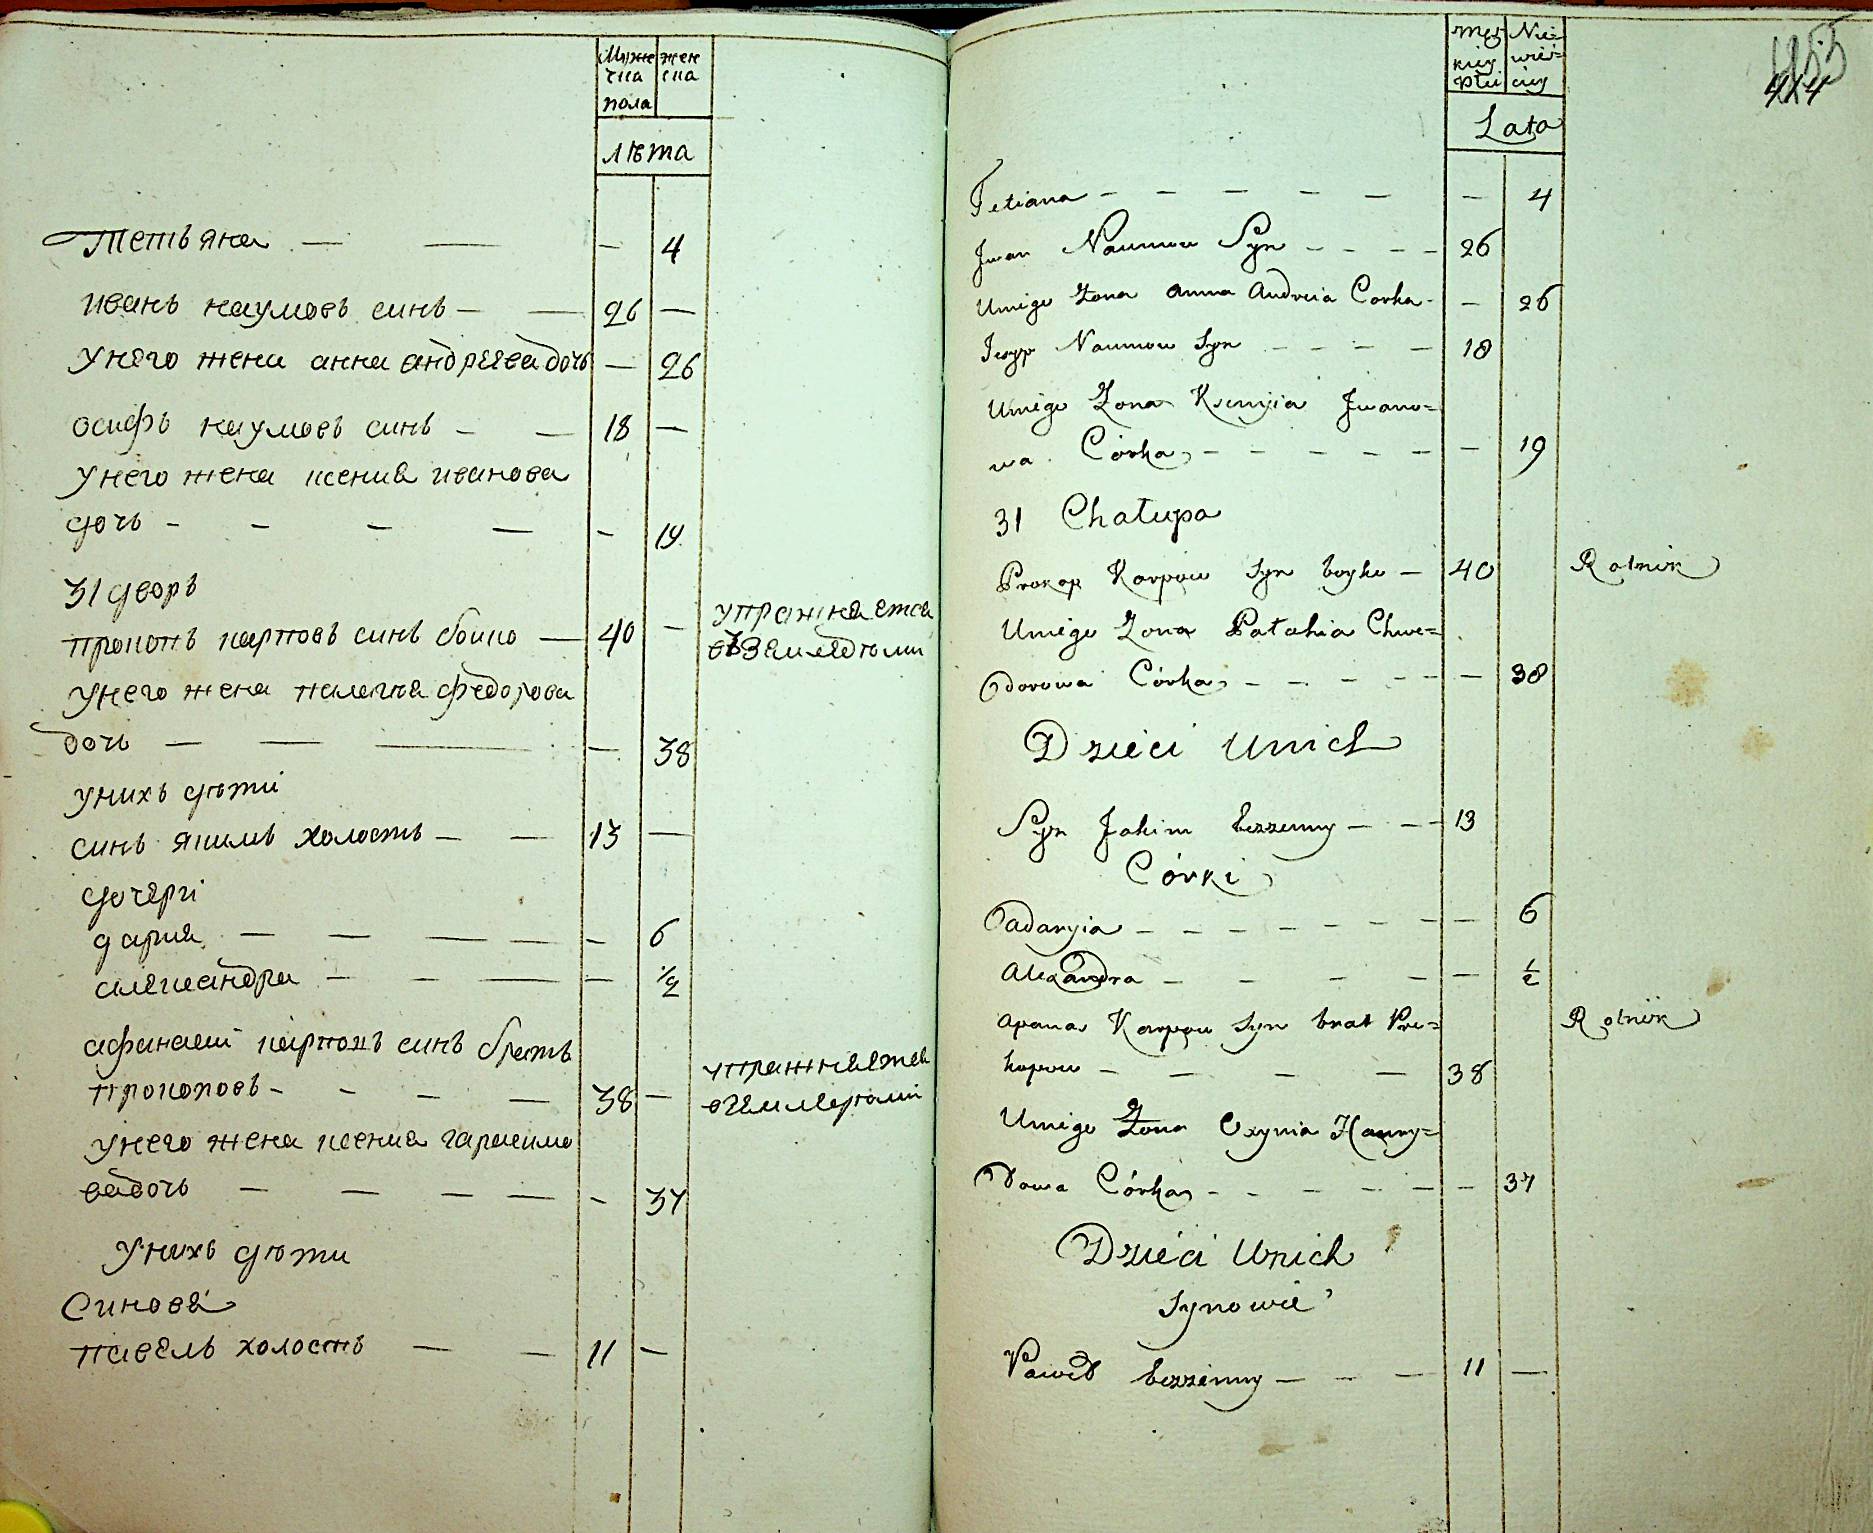 Мужеска пола
женска
лѣта
Тетьяна — — — 4
иванъ наумовъ синъ — — 26 —
Унего жена анна андреева дочь — 26
осифъ наумовъ синъ — — 18 —
Унего жена ксения иванова
дочь - - — — - 19
31 дворъ
прокопъ карповъ синъ бойко — 40 — упражняется
въ земледѣлии
Унего жена палагия федорова
дочь — — — — 38
Унихъ дѣти
синъ якимъ холостъ — — 13 —
дочери
дария — — — — - 6
александра — - — — 1/2
афанасий карповъ синъ братъ
прокоповъ - - - — 38 — упражняется
в земледѣлии
Унего жена ксения гарасимо
ва дочь — — — — - 37
Унихъ дѣти
Синовя
павелъ холостъ — — 11 —
męzkiey płci
Niewieściey
Lata
414
Tetiana — — — — — — 4
Jwan Naumow Syn - - - - 26
Uniego Zona anna Andreia Corka - — 26
Iosyp Naumow Syn - - - — 18
Uniego Zona Ksenyia Jwano=
wa Córka - - - - - — — 19
31 Chałupa
Prokop Karpow Syn boyko — 40 Rolnik
Uniego Zona Patahia Chwe=
dorowa Córka - - - - - — — 38
Dzieci Unich
Syn Jakim bezzenny — - - 13
Córki
Odaryia - - - - - - - — 6
Alexandra — - - - — — 1/2
Apanas Karpow Syn brat Pro= Rolnik
kopow — — — — 38
Uniego Zona Oxynia Harry=
Dowa Córka - - - - - — - 37
Dzieci Unich
Synowie
Paweł bezzenny — - — 11 —